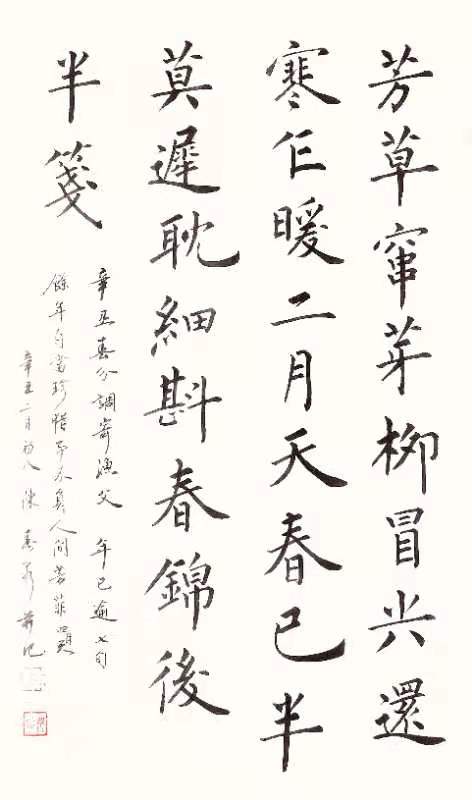 芳草窜芽柳冒尖還
寒乍暖二月天春已半
莫遲耽細斟春錦後
半箋
辛丑春分調寄漁父 年已逾七旬
餘年自當珍惜 不負人間芳菲
辛丑二月初八 陳 並記